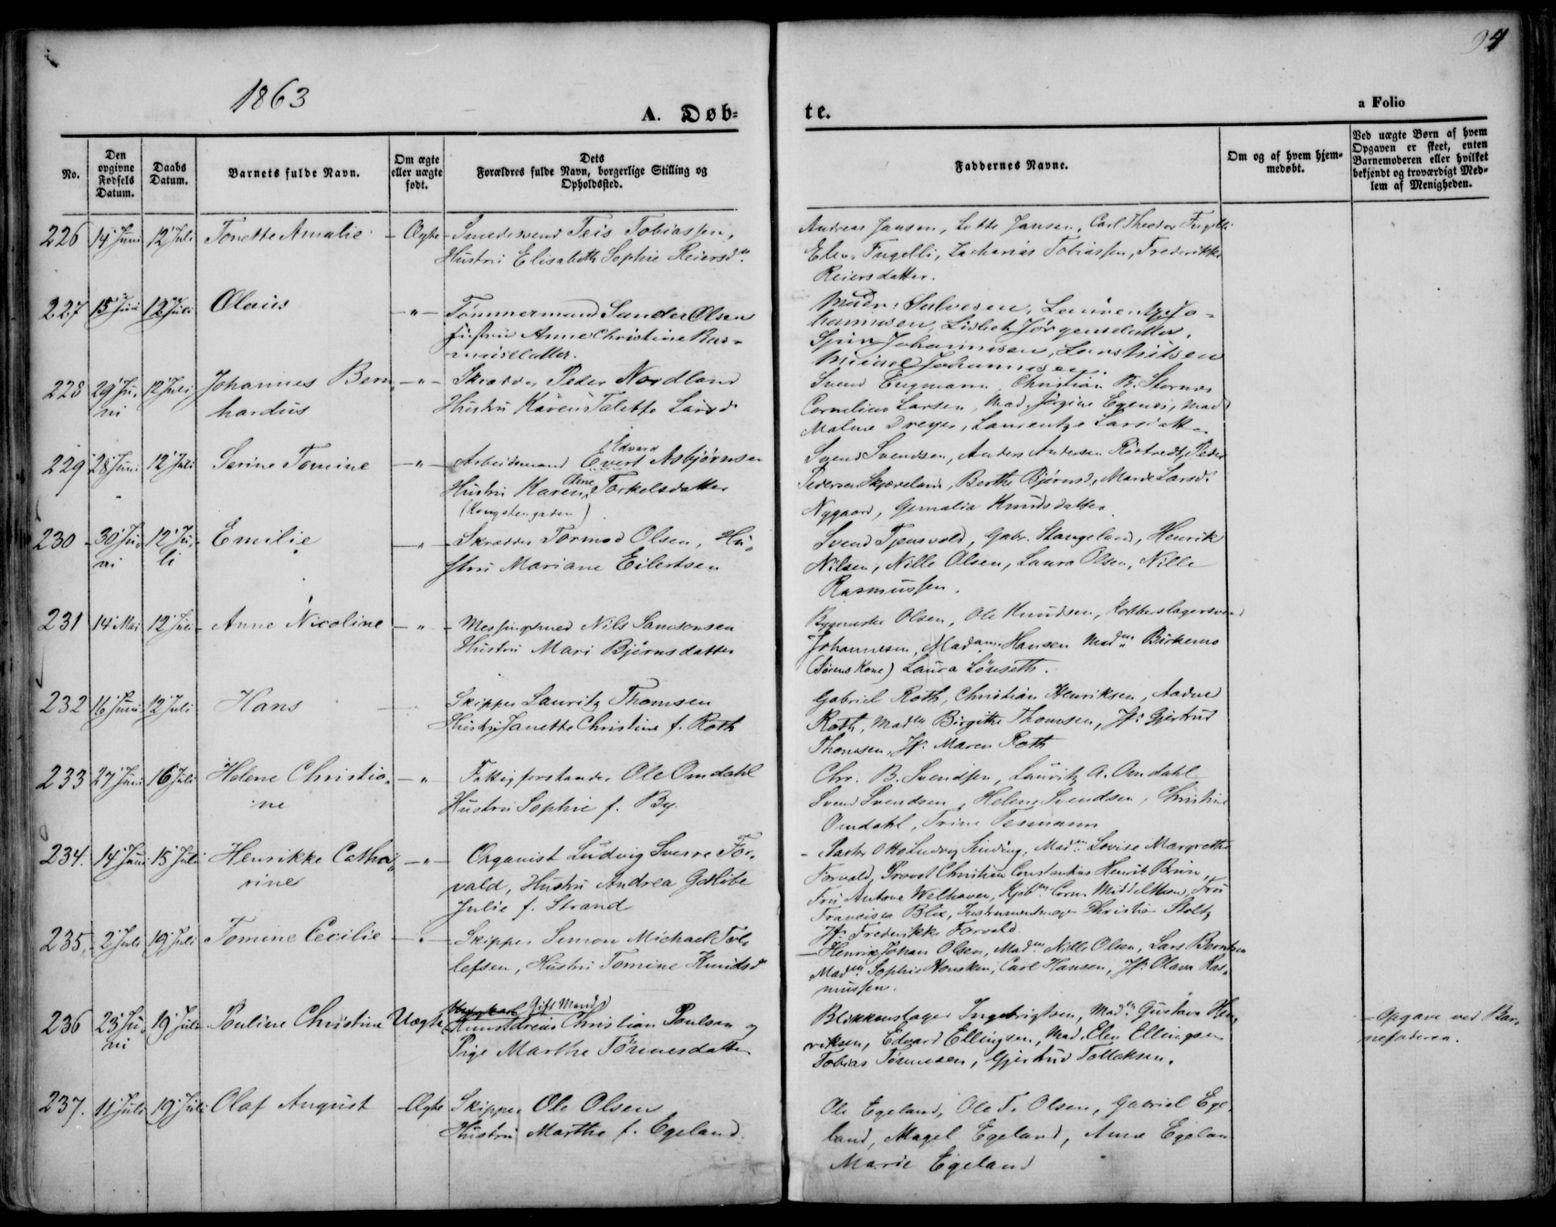 1863
94
A. Døb-
te.
a Folio
No.
Den opgivne Fødsels Datum.
Daabs Datum.
Barnets fulde Navn.
Om ægte eller uægte født.
Dets Forældres fulde Navn, borgerlige Stilling og Opholdssted.
Faddernes Navne.
Om og af hvem hjemmedøbt.
Ved uægte Børn af hvem Opgaven er skeet, enten Barnemoderen eller hvilket bekjendt og troværdigt Medlem af Menigheden.
226 14 Juni 12 Juli Tonette Amalie - Ægte - Smedesvend Teis Tobiassen,
Hustru Elisabeth Sophie Reiersd.
Andreas Jansen, Lotte Jansen, Carl Theodor Fugelli
Elen Fugelli, Zacharias Tobiassen, Frederikke
Reiersdatter.
227 15 Juni 12 Juli Olaus - " - Tømmermand Sander Olsen
Hustru Anne Christine Ras-
musdatter.
Jo-
hannesen, Lisbet Jørgensdatter,
Johannesen, Lars Nilsen
Johannesen.
228 29 Ju- 12 Juli Johannes Bern - " - Skrædder Peder Nordland
ni hardus Hustru Karen Talette Larsd.
Svend Engmann, Christian B. Stornes
Cornelius Larsen, Mad. Jørgine Egenes, Mad
Malene Dreyer, Laurentze Larsdatter
229 28 Juni 12 Juli Serine Tomine - " - Arbeidsmand Evert Asbjørnsen
Edvard
Hustru Karen Torkelsdatter
Oline
(Kongstengaden)
Svend Svendsen, Anders Andersen Peder
Pedersen Skjæveland, Berthe Bjørnsd, Marthe Larsd.
Nygaard, Knudsdatter
230 - 30 Ju- 12 Ju- Emilie - " - Skrædder Tormod Olsen, Hu-
ni li stru Mariane Eilertsen
Svend Tjensvold, Gabr. Stangeland, Henrik
Nilsen, Nille Olsen, Laura Olsen, Nille
Rasmussen.
231 14 Mai 12 Juli Anne Nicoline - " - Messingsmed Nils Samsonsen
Hustru Mari Bjørnsdatter
Olsen, Ole Knudsen, Kobberslagersvend
Johannesen, Mad Hansen Mad Birkenes
(Sørens Kone) Laura Lönseth.
232 16 Juni 12 Juli Hans Skipper Lauritz Thomsen
Hustru Janette Christine f. Roth
Gabriel Roth, Christian Henriksen, Aadne
Roth, Mad Birgithe Thomsen, Jf: Gjertrud
Thomsen, Jf: Maren Roth
233 27 Juni 16 Juli Helene Christia- - " Fattigforstander Ole Omdahl
ne Hustru Sophie f. By.
Chr. B. Svendsen, Lauritz A. Omdahl
Svend Svendsen, Helene Svendsen, Christine
Omdahl, Trine Tesmann
234. 14 Juni 15 Juli Henrikke Catha- - " - Organist Ludvig Sverre Tor-
rine vald, Hustru Andrea Gotlibe
Julie f. Strand
Pastor Otto Ludvig Sinding, Mad. Lovise Margrethe
Torvald, Provst Christian Constantius Henrik Bruun,
Fru Antone Welhaven, Kjøbm. Corn. Middelthon, Fru
Francisca Blix, Instrumentmager Christian Stoltz
Jf: Frederikke Torvald
235. 2 Juli 19 Juli Tomine Cecilie - " - Skipper Simon Michael Tol-
lefsen, Hustru Tomine Knudsd
- Henrik Johan Olsen, Mad Nille Olsen, Lars Berntsen
Mad Sophie Hansken, Carl Hansen, Jf: Olava Ras-
mussen.
236 23 Ju- 19 Juli Pauline Christine Uægte Gift Mand
ni Christian Paulsen og
Pige Marthe Tönnesdatter
Blikkenslager Ingebrigtsen, Mad. Gustava Hen-
riksen, Edvard Ellingsen, Mad. Elen Ellingsen
Tobias Tönnessen, Gjertrud Tollaksen.
- Opgave ved Bar-
nefaderen.
237. 11 Juli 19 Juli Olaf August - Ægte Skipper Ole Olsen
Hustru Marthe f. Egeland.
Ole Egeland, Ole T. Olsen, Gabriel Ege-
land, Magel Egeland, Anne Egeland
Marie Egeland